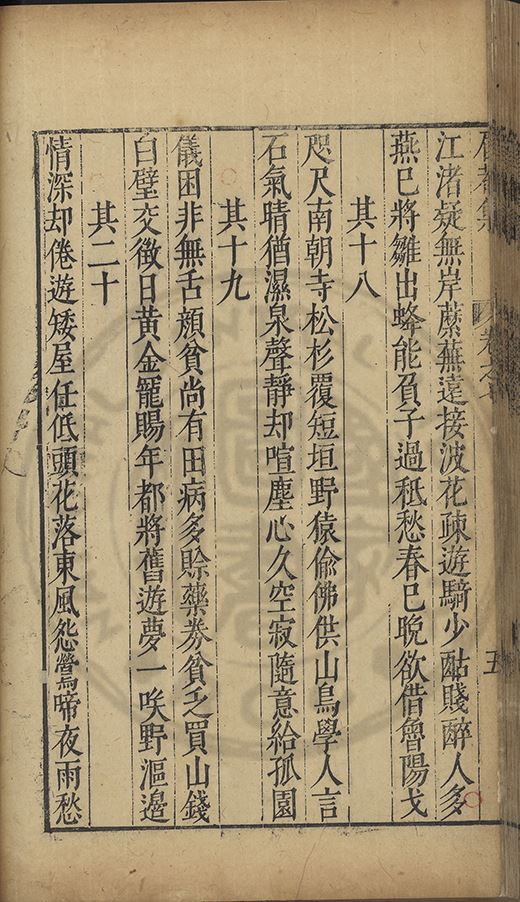 江渚疑無岸蘼蕪遠接波花疎遊騎少酤賤醉人多
燕已將雛出蜂能負子過秖愁春已晚欲借魯陽戈
其十八
咫尺南朝寺松杉覆短垣野猿偷佛供山鳥學人言
石氣晴猶濕泉聲靜却喧塵心久空寂隨意給孤園
其十九
儀困非無舌顏貧尚有田病多賒藥券貧乏買山錢
白璧交徵日黃金寵賜年都將舊遊夢一唉野漚邉
其二十
情深却倦遊矮屋任低頭花落東風怨鶯啼夜雨愁